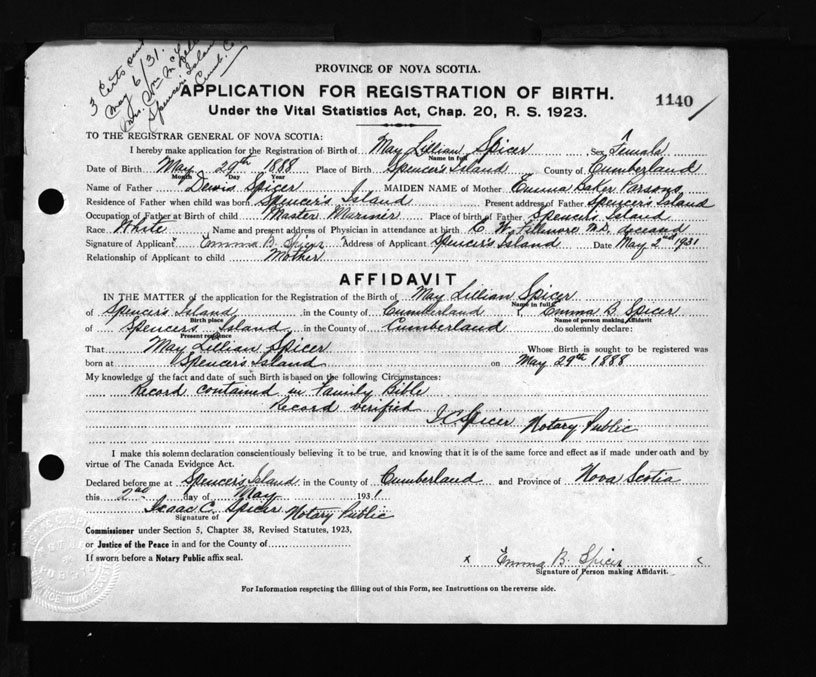 3 Certs sent
May 6/31.
Mrs. Wm Mc
Spencer's Island
Cumb. Co.
PROVINCE OF NOVA SCOTIA.
APPLICATION FOR REGISTRATION OF BIRTH.
1140
Under the Vital Statistics Act, Chap. 20, R. S. 1923.
TO THE REGISTRAR GENERAL OF NOVA SCOTIA:
I hereby make application for the Registration of Birth of May Lillian Spicer Sex Female
Name in full
Date of Birth May 29th 1888 Place of Birth Spencer's Island County of Cumberland
Month Day Year
Name of Father Dewis Spicer MAIDEN NAME of Mother Emma Baker Parsons
Residence of Father when child was born Spencer's Island Present address of Father Spencer's Island
Occupation of Father at Birth of child Master Mariner Place of birth of Father Spencer's Island
Race White Name and present address of Physician in attendance at birth C. W. Fillmore M.D. deceased
Signature of Applicant Emma B. Spicer Address of Applicant Spencer's Island Date May 2nd 1931
Relationship of Applicant to child Mother
AFFIDAVIT
IN THE MATTER of the application for the Registration of the Birth of May Lillian Spicer
Name in full
of Spencer's Island in the County of Cumberland I, Emma B. Spicer
Birth place Name of person making Affidavit
of Spencer's Island in the County of Cumberland do solemnly declare:
Present residence
That May Lillian Spicer Whose Birth is sought to be registered was
born at Spencer's Island on May 29th 1888
My knowledge of the fact and date of such Birth is based on the following Circumstances:
Record contained in Family Bible
Record verified
I C Spicer Notary Public
I make this solemn declaration conscientiously believing it to be true, and knowing that it is of the same force and effect as if made under oath and by
virtue of The Canada Evidence Act.
Declared before me at Spencer's Island in the County of Cumberland and Province of Nova Scotia
this 2nd day of May 1931
Isaac C. Spicer Notary Public
Signature of
Commissioner under Section 5, Chapter 38, Revised Statutes, 1923,
or Justice of the Peace in and for the County of
If sworn before a Notary Public affix seal.
x Emma B. Spicer
Signature of Person making Affidavit.
For Information respecting the filling out of this Form, see Instructions on the reverse side.